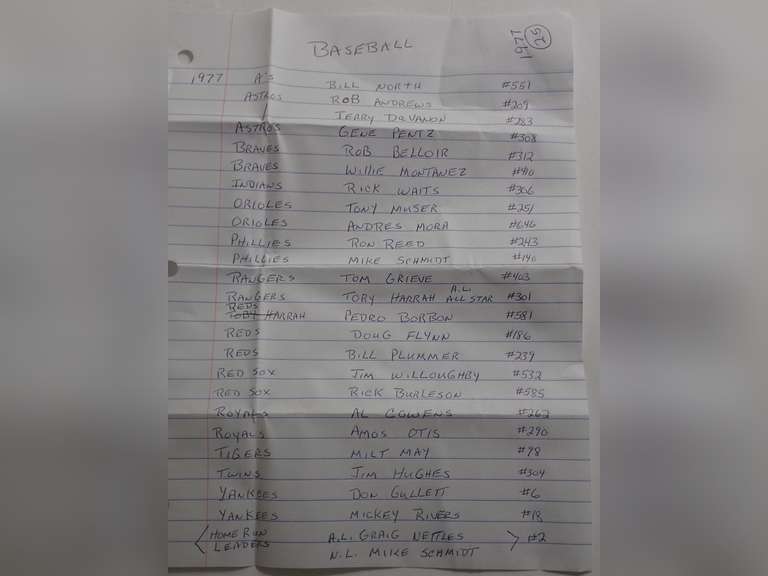 BASEBALL 1977 25
1977 A'S BILL NORTH #551
ASTROS ROB ANDREWS #209
JERRY DaVANON #283
ASTROS GENE PENTZ #308
BRAVES ROB BELLOIR #312
BRAVES WILLIE MONTANEZ #410
INDIANS RICK WAITS #306
ORIOLES TONY MUSER #251
ORIOLES ANDRES MORA #646
PHILLIES RON REED #243
PHILLIES MIKE SCHMIDT #140
RANGERS TOM GRIEVE #403
RANGERS TOBY HARRAH A.L. ALL STAR #301
REDS TOBY HARRAH PEDRO BORBON #581
REDS DOUG FLYNN #186
REDS BILL PLUMMER #239
RED SOX JIM WILLOUGHBY #532
RED SOX RICK BURLESON #585
ROYALS AL COWENS #262
ROYALS AMOS OTIS #290
TIGERS MILT MAY #98
TWINS JIM HUGHES #304
YANKEES DON GULLETT #6
YANKEES MICKEY RIVERS #18
HOME RUN A.L. GRAIG NETTLES #2
LEADERS N.L. MIKE SCHMIDT